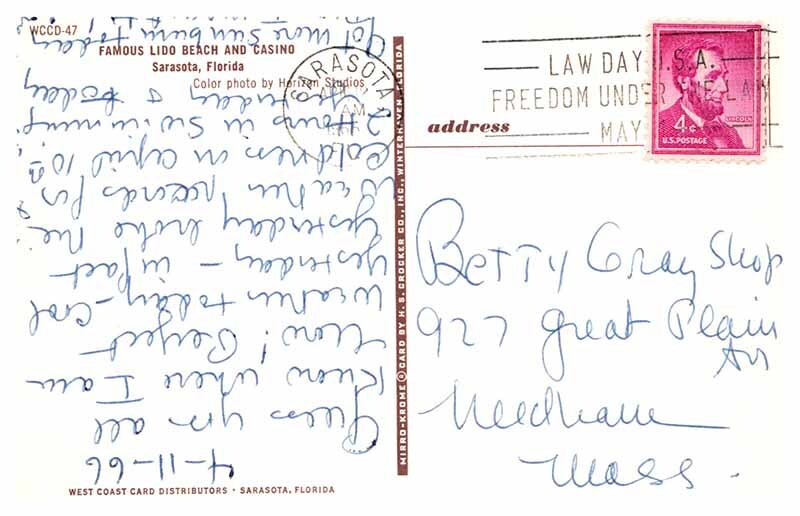 WCCD-47
FAMOUS LIDO BEACH AND CASINO
Sarasota, Florida
Color photo by Horizon Studios
4-11-66
Guess you all
Know where I am
Now! Perfect
Weather today - Cool
yesterday - in fact
yesterday broke the
Weather records for
Coldness in April 10
2 Hours in Swimming
yesterday & today
Got more Sunburn today
WEST COAST CARD DISTRIBUTORS · SARASOTA, FLORIDA
MIRRO-KROME ® CARD BY H. S. CROCKER CO., INC., WINTER HAVEN, FLORIDA
SARASOTA
AM
LAW DAY U.S.A.
FREEDOM UNDER THE LAW
MAY
LINCOLN
4¢
U.S. POSTAGE
address
Betty Gray Shop
927 Great Plain
Av
Needham
Mass.